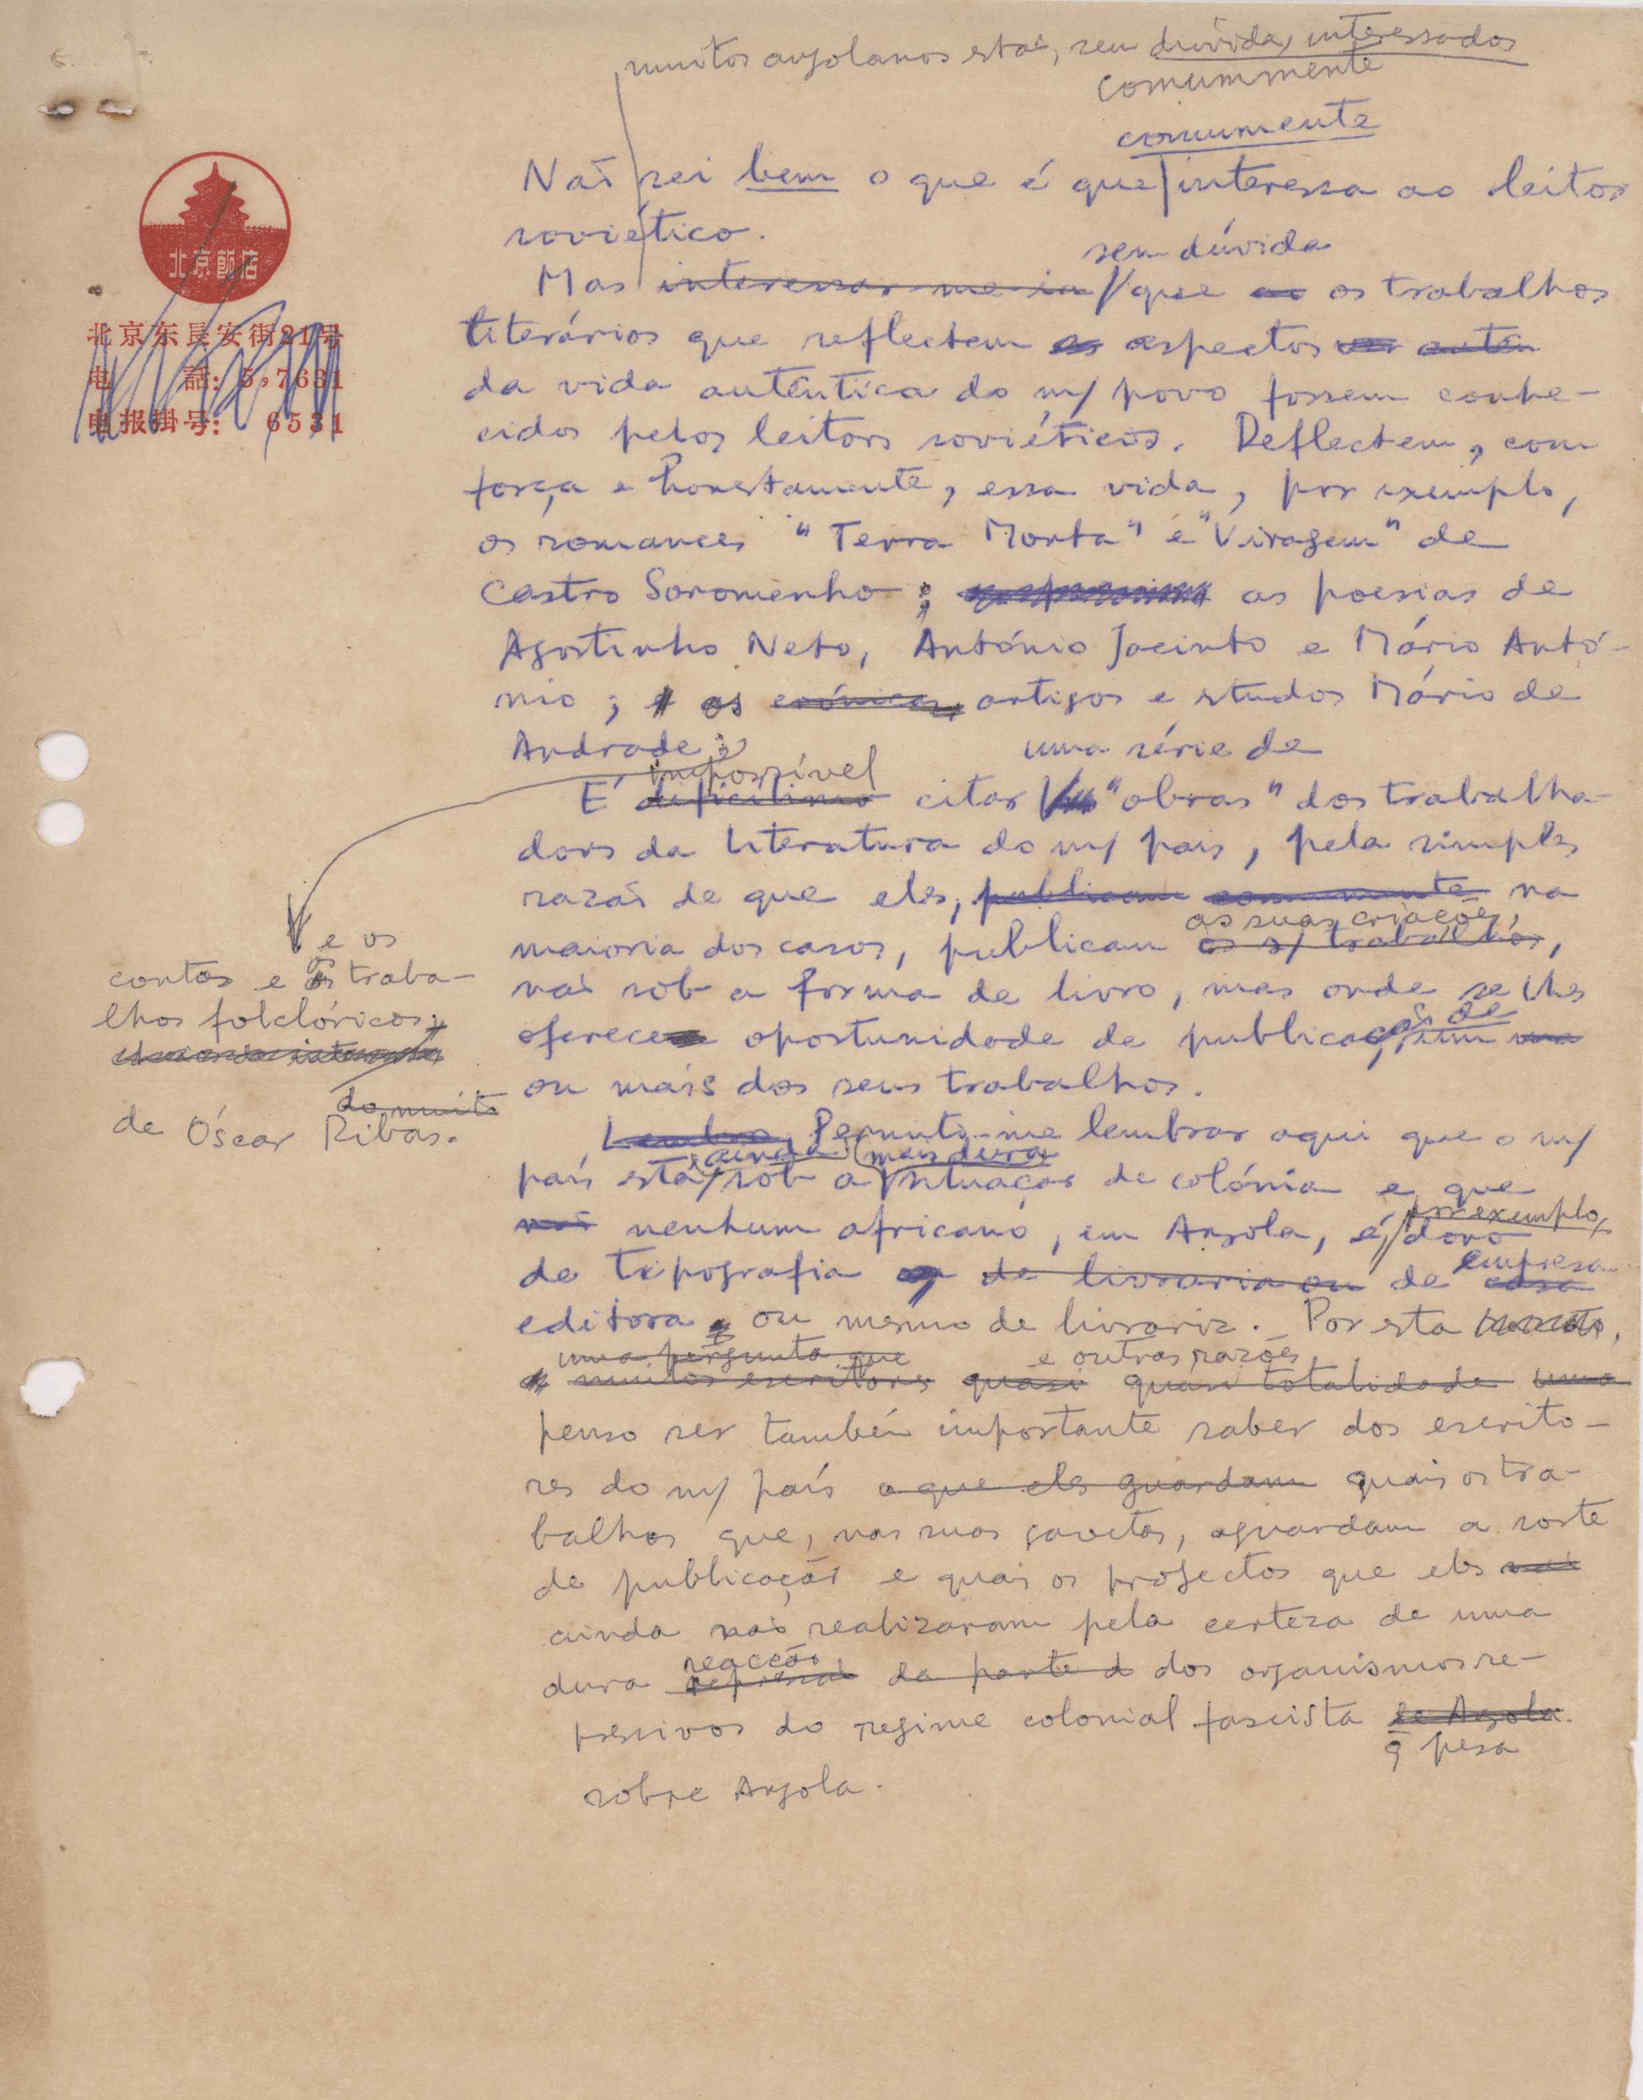 muitos angolanos estão, sem dúvida, interessados
comummente
comumente
Não sei bem o que é que interessa ao leitor
soviético.
sem dúvida
Mas interessar-me-ia que os trabalhos
literários que reflectem os aspectos autên
da vida autêntica do n/ povo fossem conhe-
cidos pelos leitores soviéticos. Reflectem, com
força e honestamente, essa vida, por exemplo,
os romances "Terra Morta" e "Viragem" de
Castro Soromenho; as poesias de
Agostinho Neto, António Jacinto e Mário Antó-
nio; os crónicas, artigos e studos Mário de
Andrade;
uma série de
impossível
É dificílimo citar "obras" dos trabalha-
dores da literatura do n/ país, pela simples
razão de que eles, publicam comumente na
as suas criações,
maioria dos casos, publicam os s/ trabalhos,
não sob a forma de livro, mas onde se lhes
oferece oportunidade de publicação de um
ou mais dos seus trabalhos.
Lembro, Permita-me lembrar aqui que o n/
ainda mais dura
país está sob a situação de colónia e que
não nenhum africano, em Angola, é dono
por exemplo,
de tipografia de livraria ou de casa
empresa
editora, ou mesmo de livraria. Por esta
uma pergunta que
e outras razões,
muitos escritores quasi quasi totalidade uma
penso ser também importante saber dos escrito-
res do n/ país o que eles guardam quais os tra-
balhos que, nas suas gavetas, aguardam a sorte
de publicação e quais os projectos que eles não
ainda não realizaram pela certeza de uma
reacção
dura repressão da parte d dos organismos re-
pressivos do regime colonial fascista de Angola.
q pesa
sobre Angola.
北京飯店
北京东長安街21号
电話: 5,7631
电报掛号: 6531
e os
contos e os traba-
lhos folclóricos;
do muito
de Óscar Ribas.